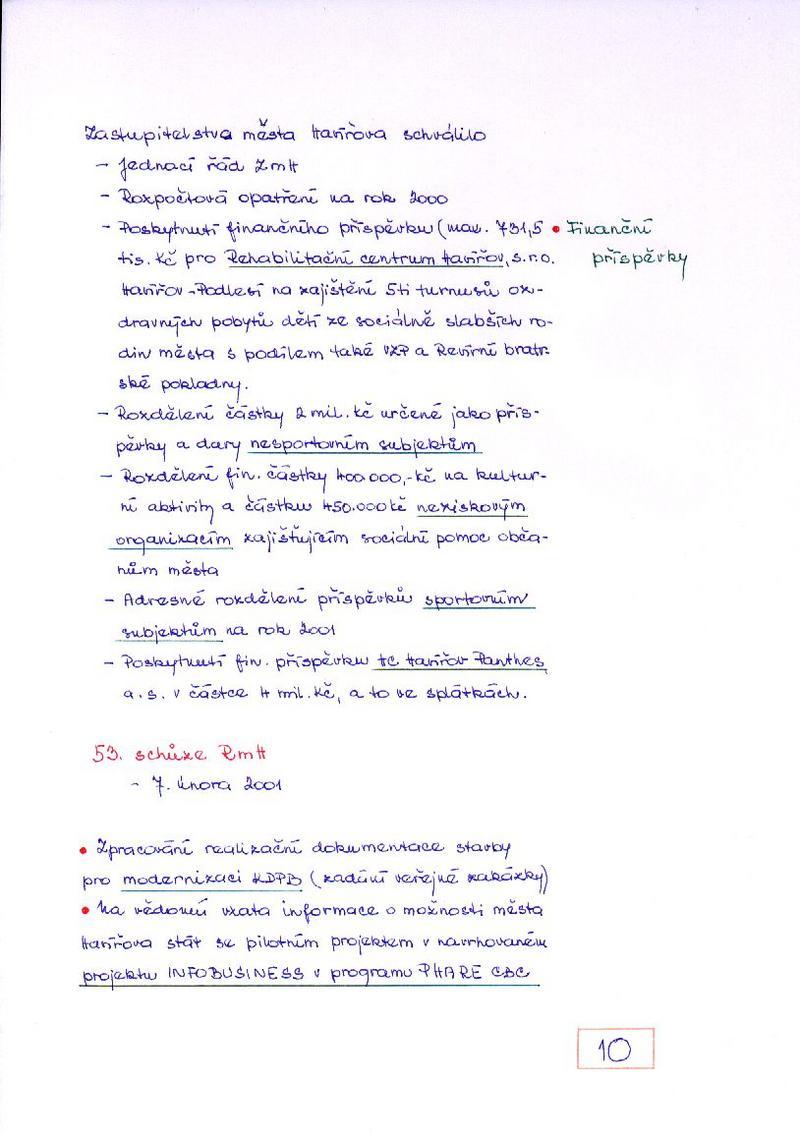 Zastupitelstva města Havířova schválilo
- Jednací řád ZmH
- Rozpočtová opatření na rok 2000
- Poskytnutí finančního příspěvku (max. 731,5 • Finanční
tis. Kč pro Rehabilitační centrum Havířov, s.r.o. příspěvky
Havířov-Podlesí na zajištění 5ti turnusů oz-
dravných pobytů dětí ze sociálně slabších ro-
din města s podílem také VZP a Revírní bratr-
ské pokladny.
- Rozdělení částky 2 mil. Kč určené jako přís-
pěvky a dary nesportovním subjektům
- Rozdělení fin. částky 400.000,-Kč na kultur-
ní aktivity a částku 450.000 Kč neziskovým
organizacím zajišťujícím sociální pomoc obča-
nům města
- Adresné rozdělení příspěvků sportovním
subjektům na rok 2001
- Poskytnutí fin. příspěvku HC Havířov Panthes
a.s. v částce 4 mil. Kč, a to ve splátkách.
53. schůze RmH
- 7. února 2001
• Zpracování realizační dokumentace stavby
pro modernizaci KDPB (zadání veřejné zakázky)
• Na vědomí vzata informace o možnosti města
Havířova stát se pilotním projektem v navrhovaném
projektu INFOBUSINESS v programu PHARE CBC
10